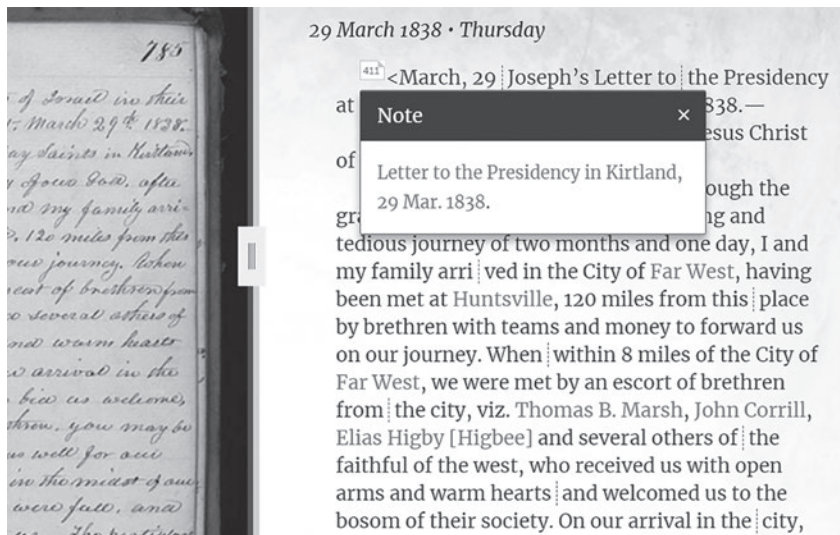 785
of Israel in their
March 29th 1838.
Saints in Kirtland
God, after
my family arri-
120 miles from this
journey. When
escort of brethren from
several others of
and warm hearts
arrival in the
bid us welcome,
you may be
us well for our
in the midst of our
were full, and
29 March 1838 • Thursday
411
<March, 29 Joseph's Letter to the Presidency
at
838.—
esus Christ
of
ough the
gra
ng and
Note ×
Letter to the Presidency in Kirtland,
29 Mar. 1838.
tedious journey of two months and one day, I and
my family arri ved in the City of Far West, having
been met at Huntsville, 120 miles from this place
by brethren with teams and money to forward us
on our journey. When within 8 miles of the City of
Far West, we were met by an escort of brethren
from the city, viz. Thomas B. Marsh, John Corrill,
Elias Higby [Higbee] and several others of the
faithful of the west, who received us with open
arms and warm hearts and welcomed us to the
bosom of their society. On our arrival in the city,